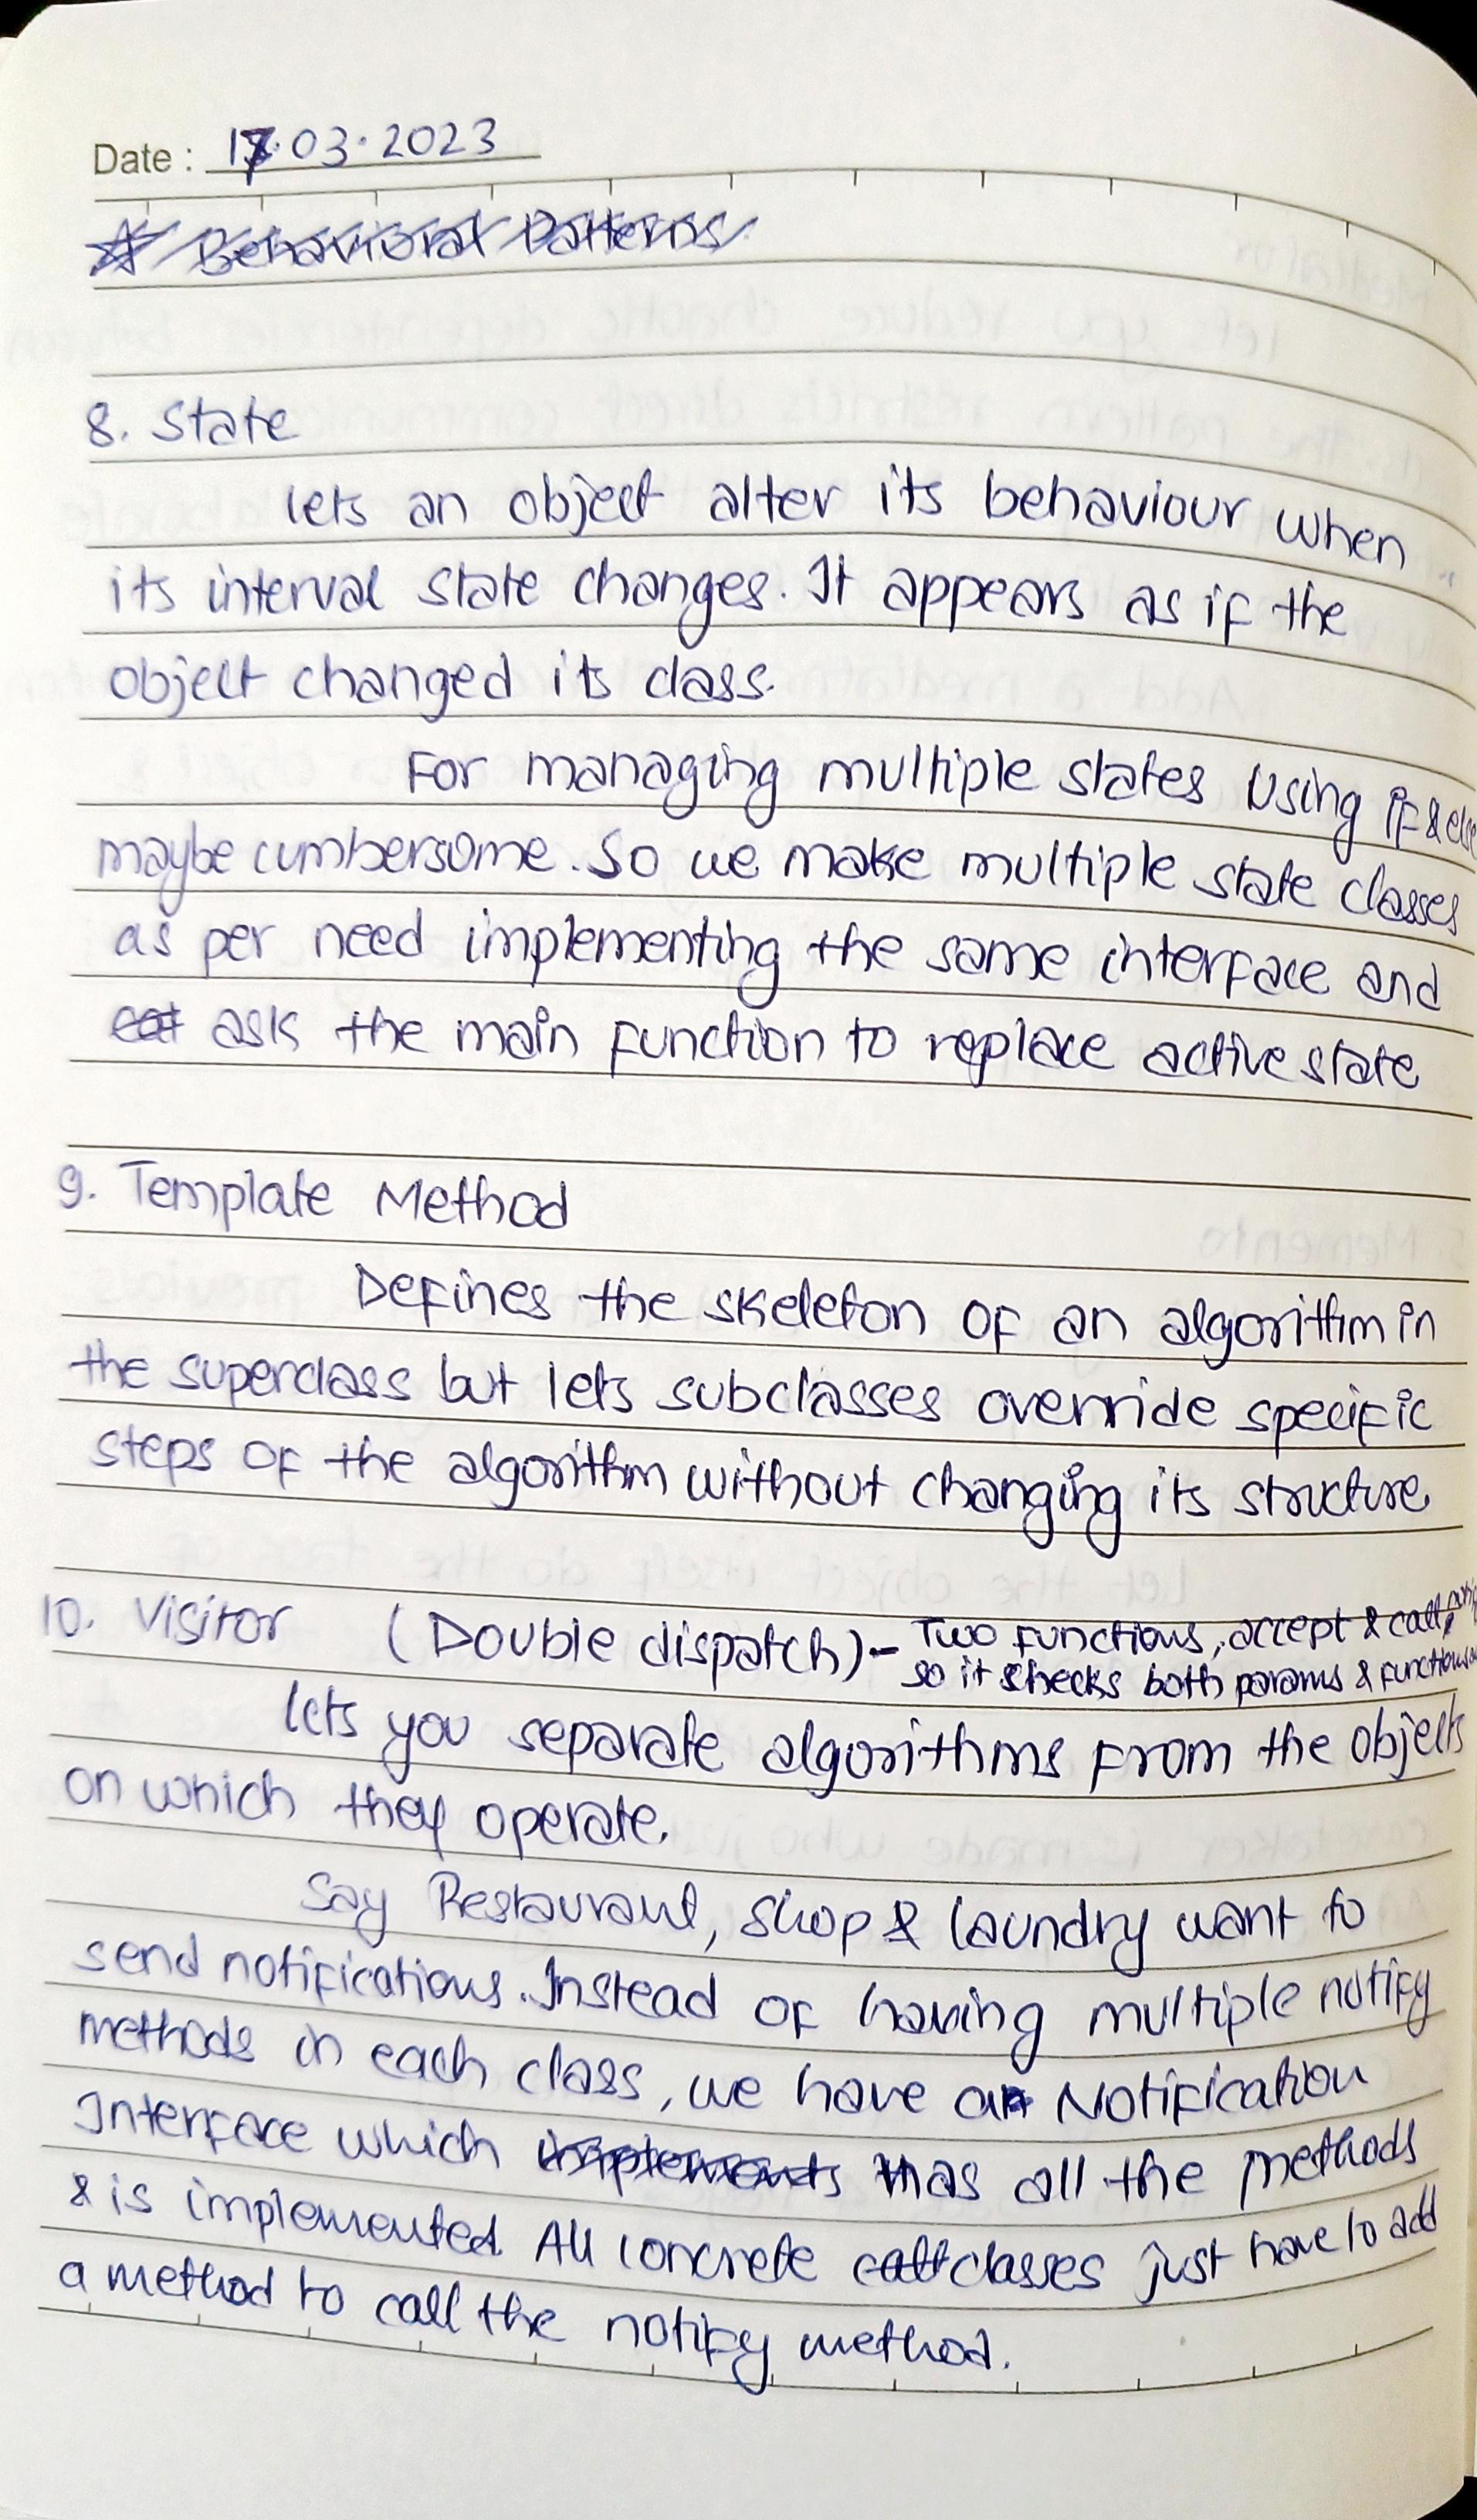 Date : 17.03.2023
Behavioral Patterns
8. State
lets an object alter its behaviour when
its interval state changes. It appears as if the
object changed its class.
For managing multiple states using if & else
maybe cumbersome. So we make multiple state classes
as per need implementing the same interface and
ask the main function to replace active state
9. Template Method
Defines the skeleton of an algorithm in
the superclass but lets subclasses override specific
steps of the algorithm without changing its structure
10. Visitor (Double dispatch) - Two functions, accept & call
so it checks both params & functions
lets you separate algorithms from the objects
on which they operate.
Say Restaurant, Shop & laundry want to
send notifications. Instead of having multiple notify
methods in each class, we have a Notification
Interface which implements has all the methods
& is implemented. All concrete call classes just have to add
a method to call the notify method.